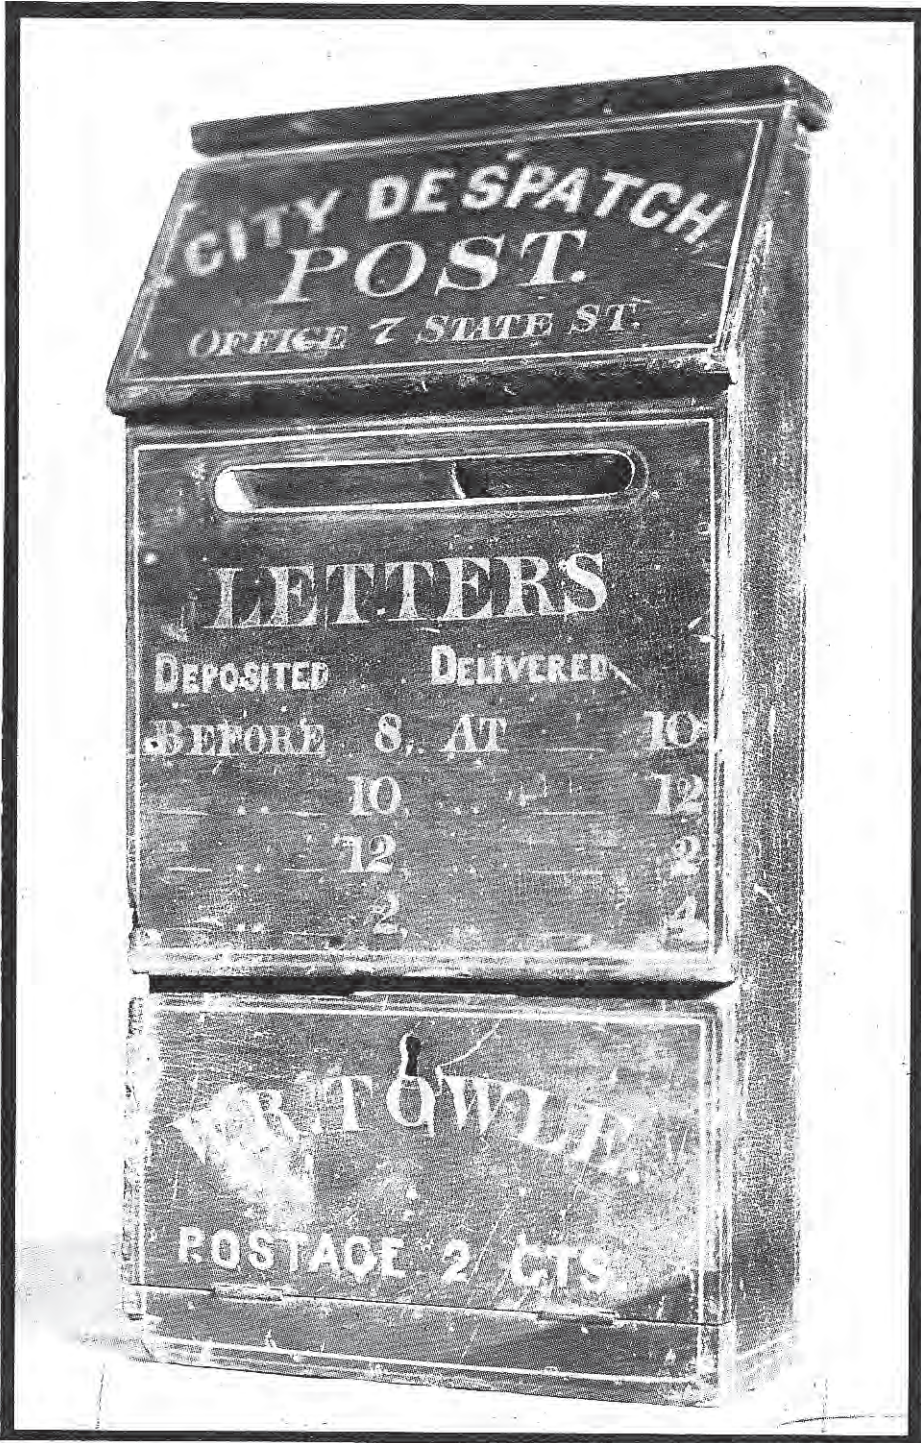 CITY DESPATCH
POST.
OFFICE 7 STATE ST.
LETTERS
DEPOSITED DELIVERED
BEFORE 8, AT 10
10, 12
12, 2
2, 4
W.R. TOWLE.
POSTAGE 2 CTS.